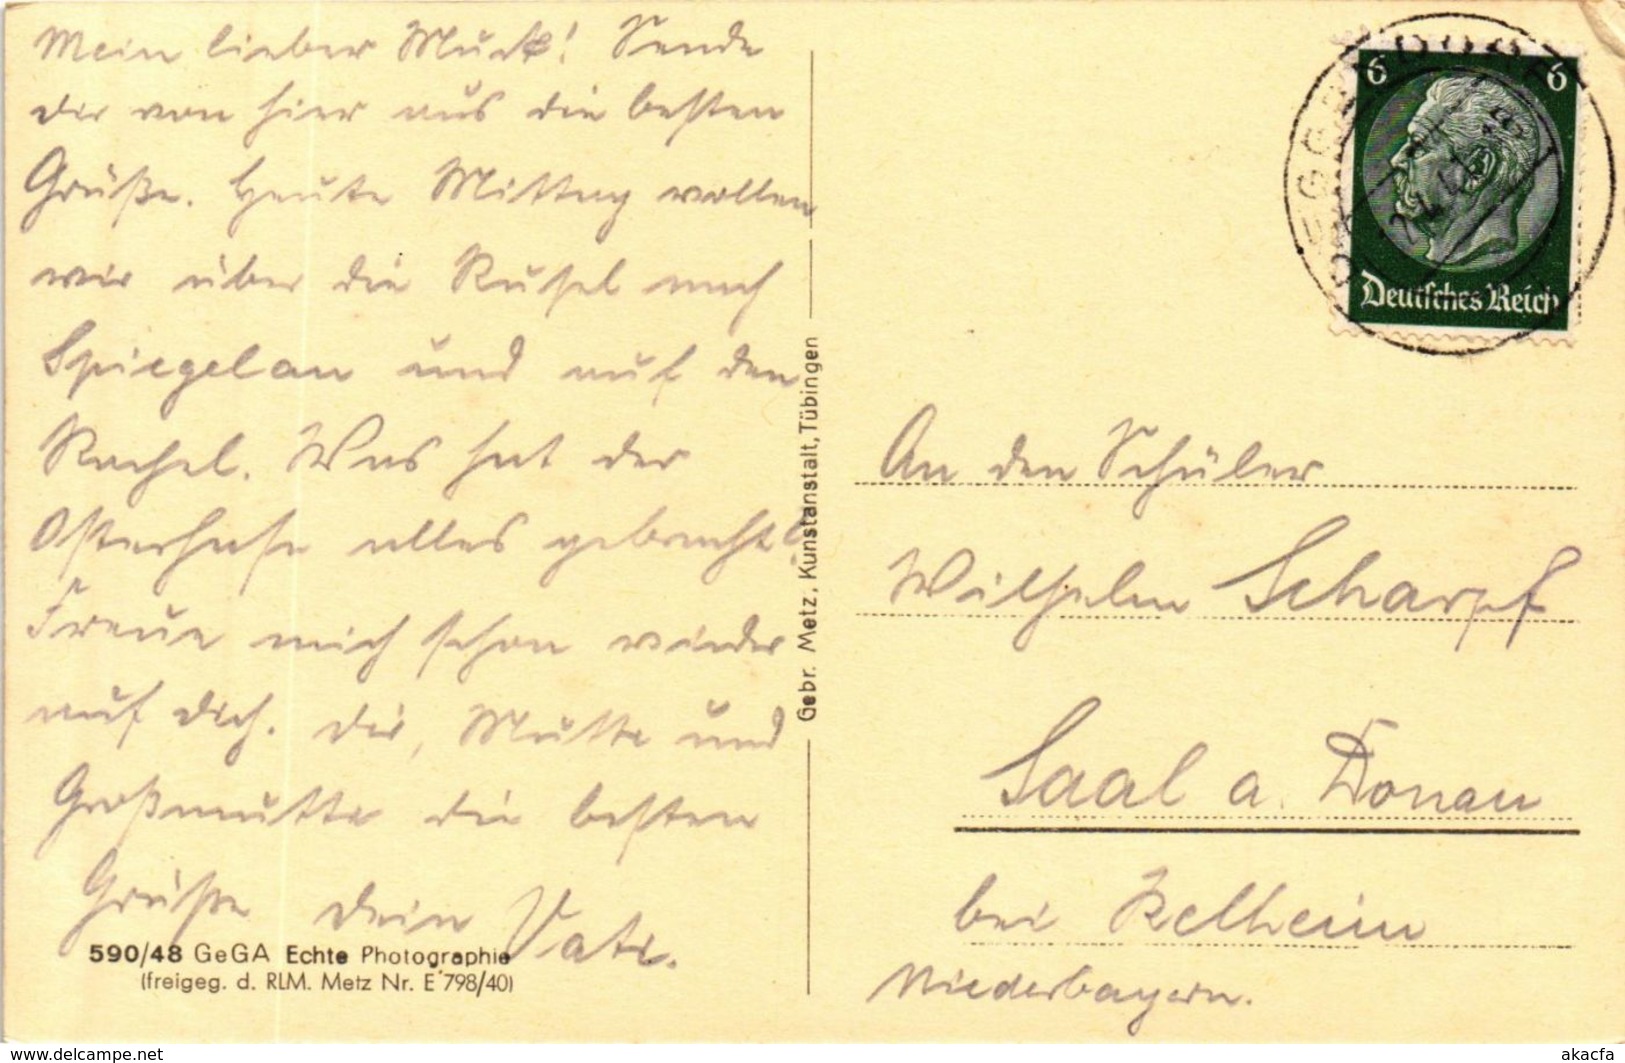 Mein lieber Muck! Sende
dir von hier aus die besten
Grüße. Heute Mittag wollen
wir über die Rusel nach
Spiegelau und auf den
Rachel. Was hat der
Osterhase alles gebracht?
Freue mich schon wieder
auf dich. Dir, Mutter und
Großmutter die besten
Grüße dein Vater.
590/48 GeGA Echte Photographie
(freigeg. d. RLM. Metz Nr. E 798/40)
Gebr. Metz, Kunstanstalt, Tübingen
6 6
Deutsches Reich
An den Schüler
Wilhelm Scharpf
Saal a. Donau
bei Kelheim
Niederbayern.
https://www.delcampe.net
akacfa